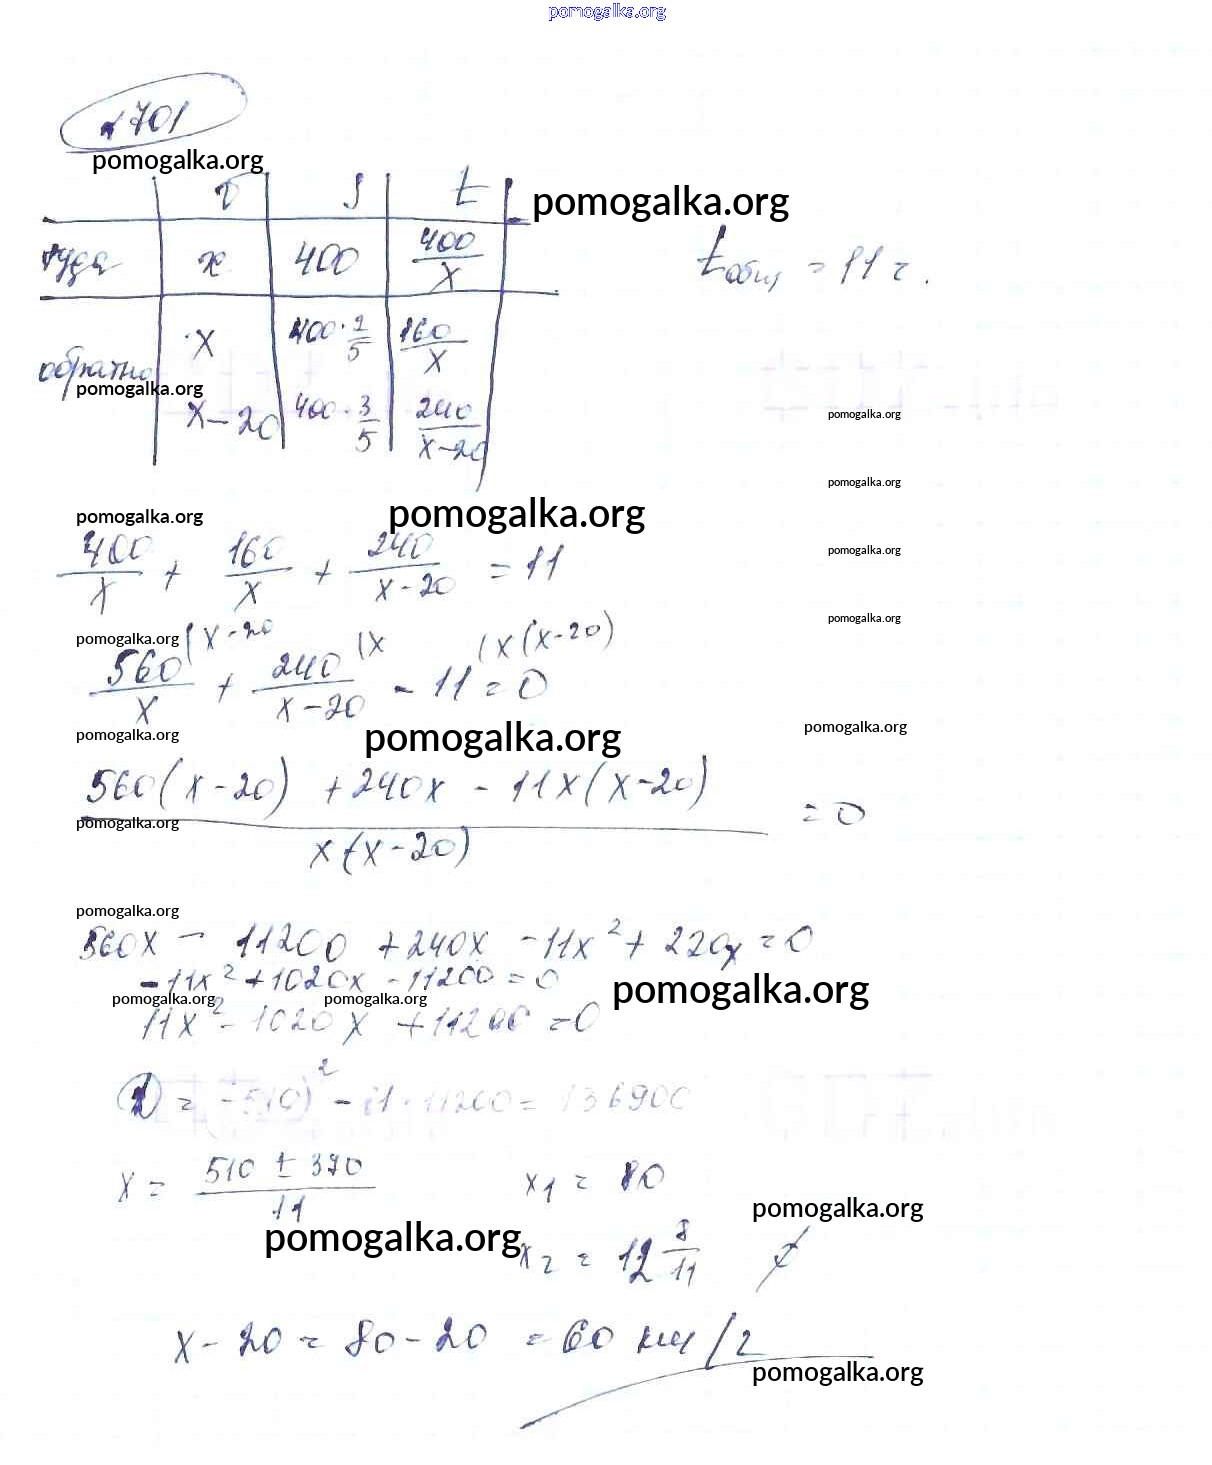 pomogalka.org
№701
pomogalka.org
v S t
pomogalka.org
туда x 400 400/x
tобщ = 11 ч.
обратно x 400·2/5 160/x
pomogalka.org
x-20 400·3/5 240/(x-20)
pomogalka.org
pomogalka.org
pomogalka.org
pomogalka.org
400/x + 160/x + 240/(x-20) = 11
pomogalka.org
pomogalka.org
pomogalka.org
560/x (x-20 + 240/(x-20) (x - 11 (x(x-20) = 0
pomogalka.org
pomogalka.org
pomogalka.org
560(x-20) + 240x - 11x(x-20)
pomogalka.org
x(x-20)
= 0
pomogalka.org
560x - 11200 + 240x - 11x² + 220x = 0
-11x² + 1020x - 11200 = 0
pomogalka.org
pomogalka.org
pomogalka.org
11x² - 1020x + 11200 = 0
D = (-510)² - 11·11200 = 136900
x = (510 ± 370)/11 x1 = 80
pomogalka.org
pomogalka.org
x2 = 12 8/11 ∉
x - 20 = 80 - 20 = 60 км/ч
pomogalka.org